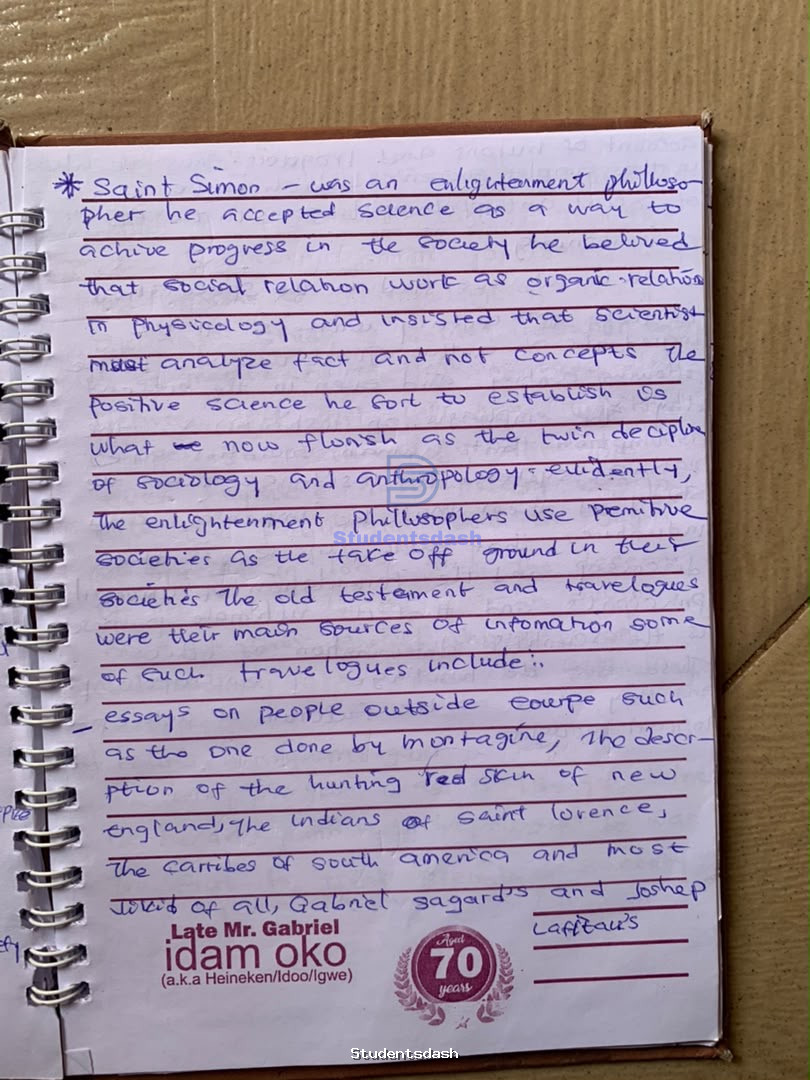 * Saint Simon - was an enlightenment philloso-
pher he accepted science as a way to
achive progress in the society he beloved
that social relation work as organic relation
in physicology and insisted that scientist
must analyze fact and not concepts the
positive science he sort to establish is
what now florish as the twin decipline
of sociology and anthropology. evidently,
The enlightenment phillusophers use pemitive
societies as the take off ground in their
societies The old testament and travelogues
were their main sources of infomation some
of such travelogues include:.
- essays on people outside eourpe such
as the one done by montagine, The descr-
ption of the hunting red skin of new
england, The indians of saint lorence,
The carribes of south america and most
of all, Gabriel sagard's and Joshep
Laffitau's
Late Mr. Gabriel
idam oko
(a.k.a Heineken/Idoo/Igwe)
Aged
70
years
Studentsdash
Studentsdash